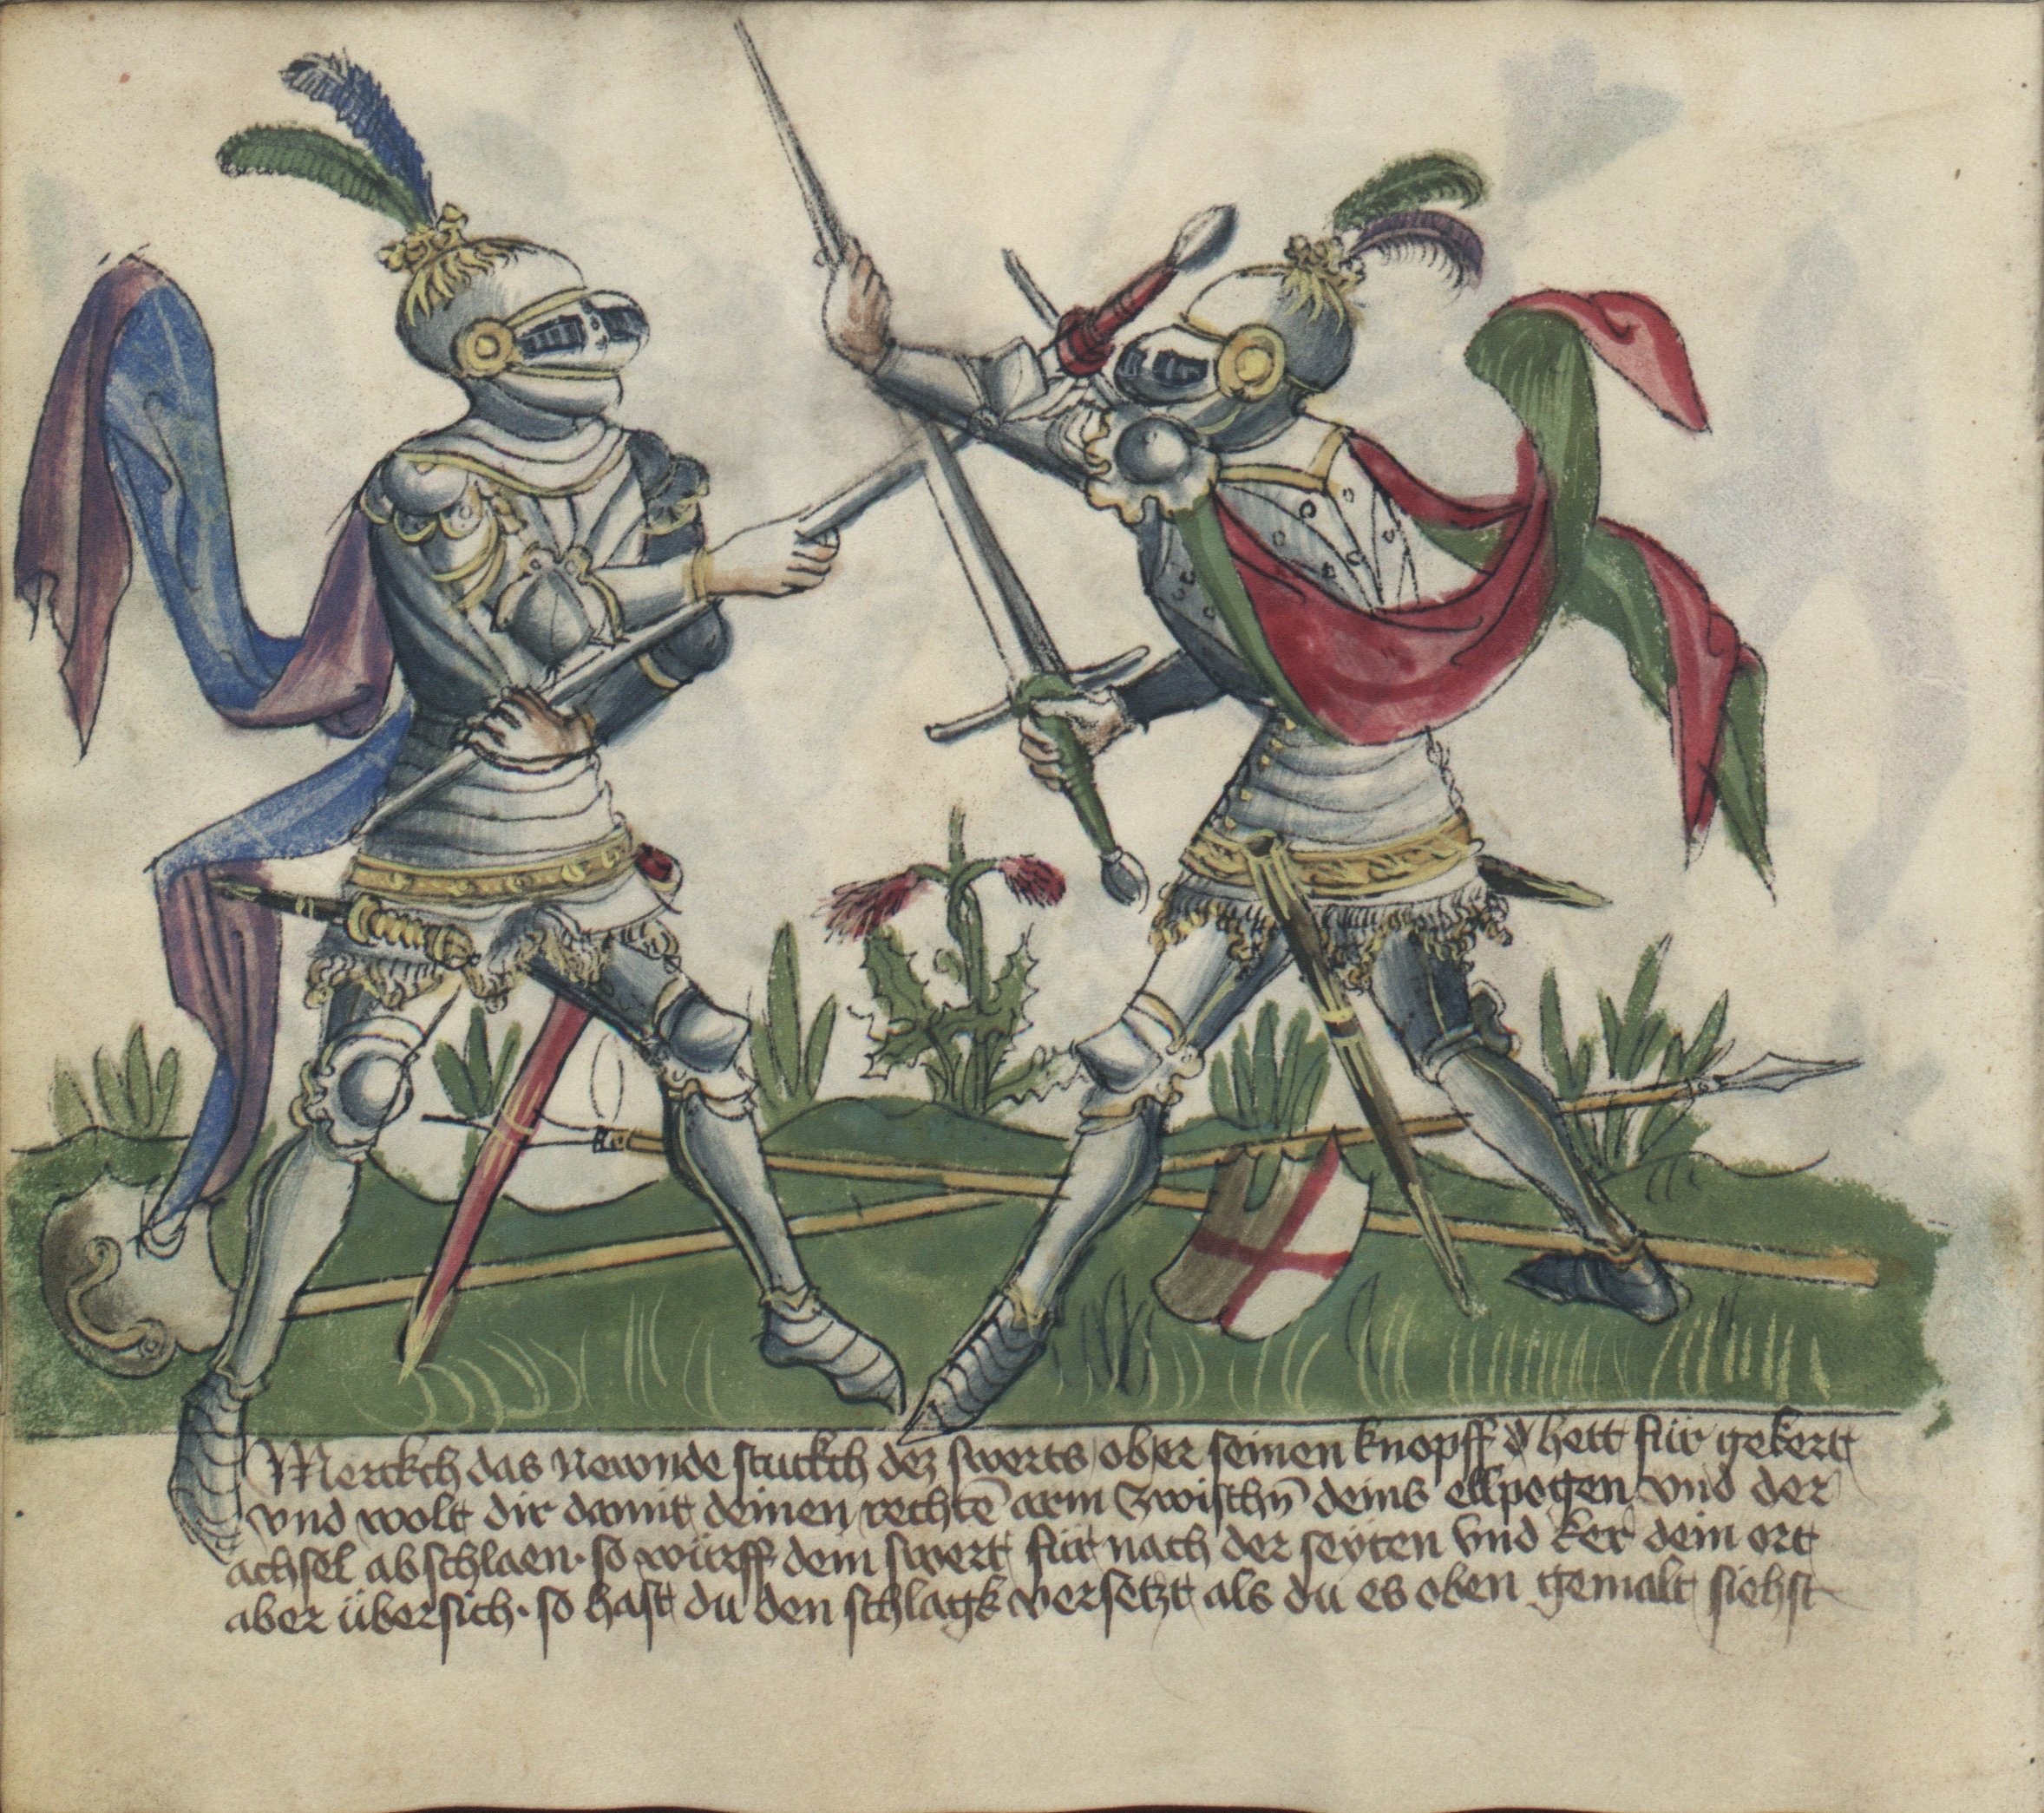 Merckch das Newnde stuckch dez swerts ober seinen knopff d hett für gekert
vnd wolt dir damit deinen rechtē arm zwischn̄ deins ellpogen vnd der
achsel abschlaen · so würff dein swert für nach der seyten vnd ker dein ort
aber übersich · so hast du den schlagk versetzt als du es oben gemalt siehst